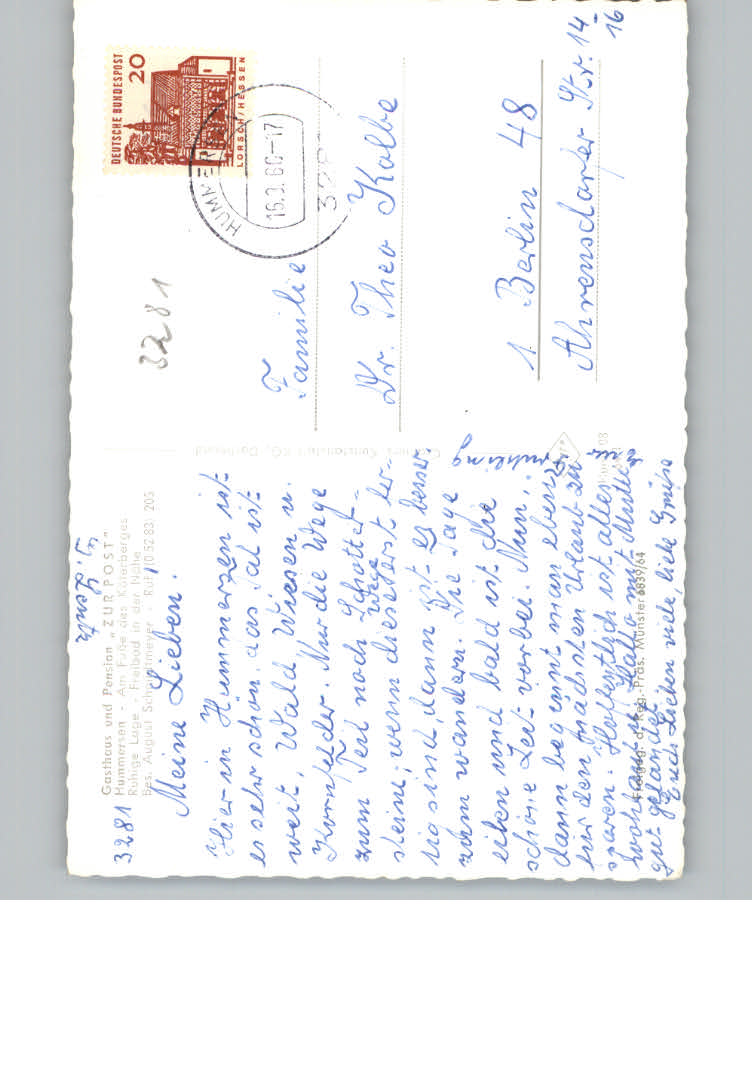 Gasthaus und Pension "ZUR POST"
Hummersen - Am Fuße des Köterberges
Ruhige Lage - Freibad in der Nähe
Bes. August - Ruf (0 52 83) 205
3281
Meine Lieben.
Hier in Hummersen ist
es sehr schön. das Tal ist
weit, Wald Wiesen u.
Kornfelder. Nur die Wege
zum Teil noch Schotter-
steine, wenn diese erst fer-
tig sind, dann ist es besser
zum wandern. Die Tage
eilen und bald ist die
schöne Zeit vorbei. Nun,
dann beginnt man eben
für den nächsten Urlaub zu
sparen. Hoffentlich ist alles
wohlauf u. Hallo mit Mutter
gut gelandet.
Euch Lieben viele, liebe Grüße
Freigeg. d. Reg.-Präs. Münster 6839/64
DEUTSCHE BUNDESPOST
20
LORSCH/HESSEN
HUMMER
3281
Familie
Dr. Theo Kolbe
1 Berlin 48
Ahrensdorfer Str. 14-
16